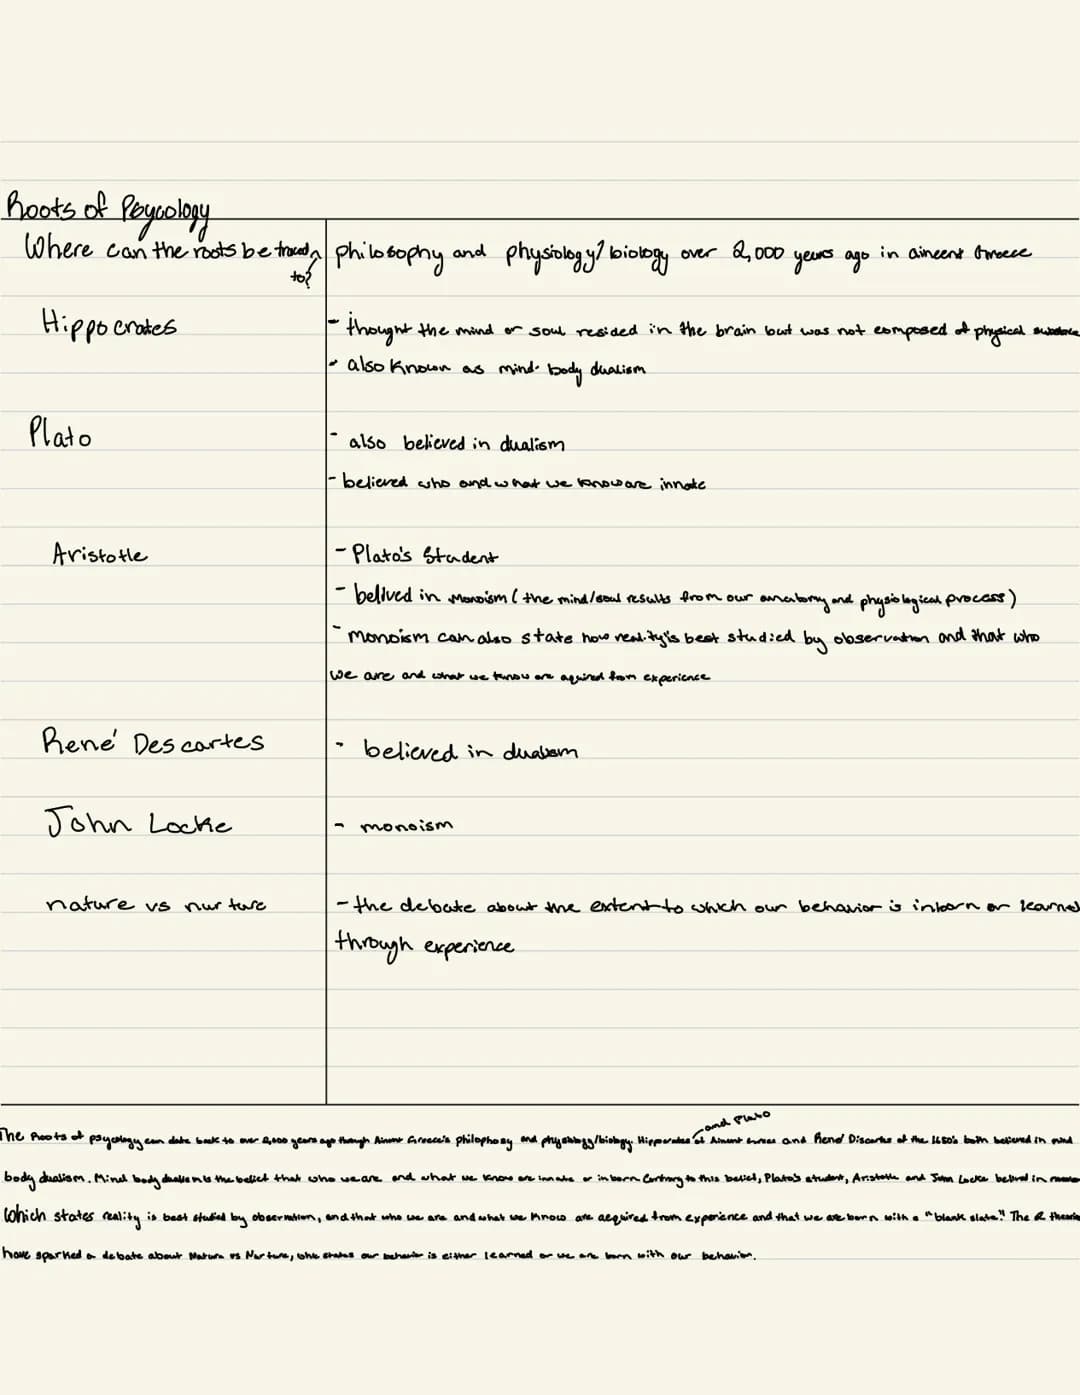 Roots of Psycology
Where can the roots be traced to? philosophy and physiology/biology over 2,000 years ago in aincent Greece
Hippocrates - thought the mind or soul resided in the brain but was not composed of physical substance
- also known as mind-body dualism
Plato - also believed in dualism
- believed who and what we know are innate
Aristotle - Plato's Student
- belived in Monoism (the mind/soul results from our anatomy and physiological process)
- monoism can also state how reality's best studied by observation and that who
we are and what we know are aquired from experience
René Descartes - believed in dualism
John Locke - monoism
nature vs nurture - the debate about the extent to which our behavior is inborn or learned
through experience
and Plato
The Roots of psycology can date back to over 2,000 years ago through Greece's and physiology/biology. of and René of the 1650's both believed in mind
body dualism. Mind body dualism is the belief that who we are and what we know are innate or inborn Contrary to this belief, Plato's student, Aristotle and John Locke belived in
which states reality is best studied by observation, and that who we are and what we know are acquired from experience and that we are born with a "blank slate." The 2 theories
have sparked a debate about Nature vs Nurture, states our behavior is either learned or we are born with our behavior.